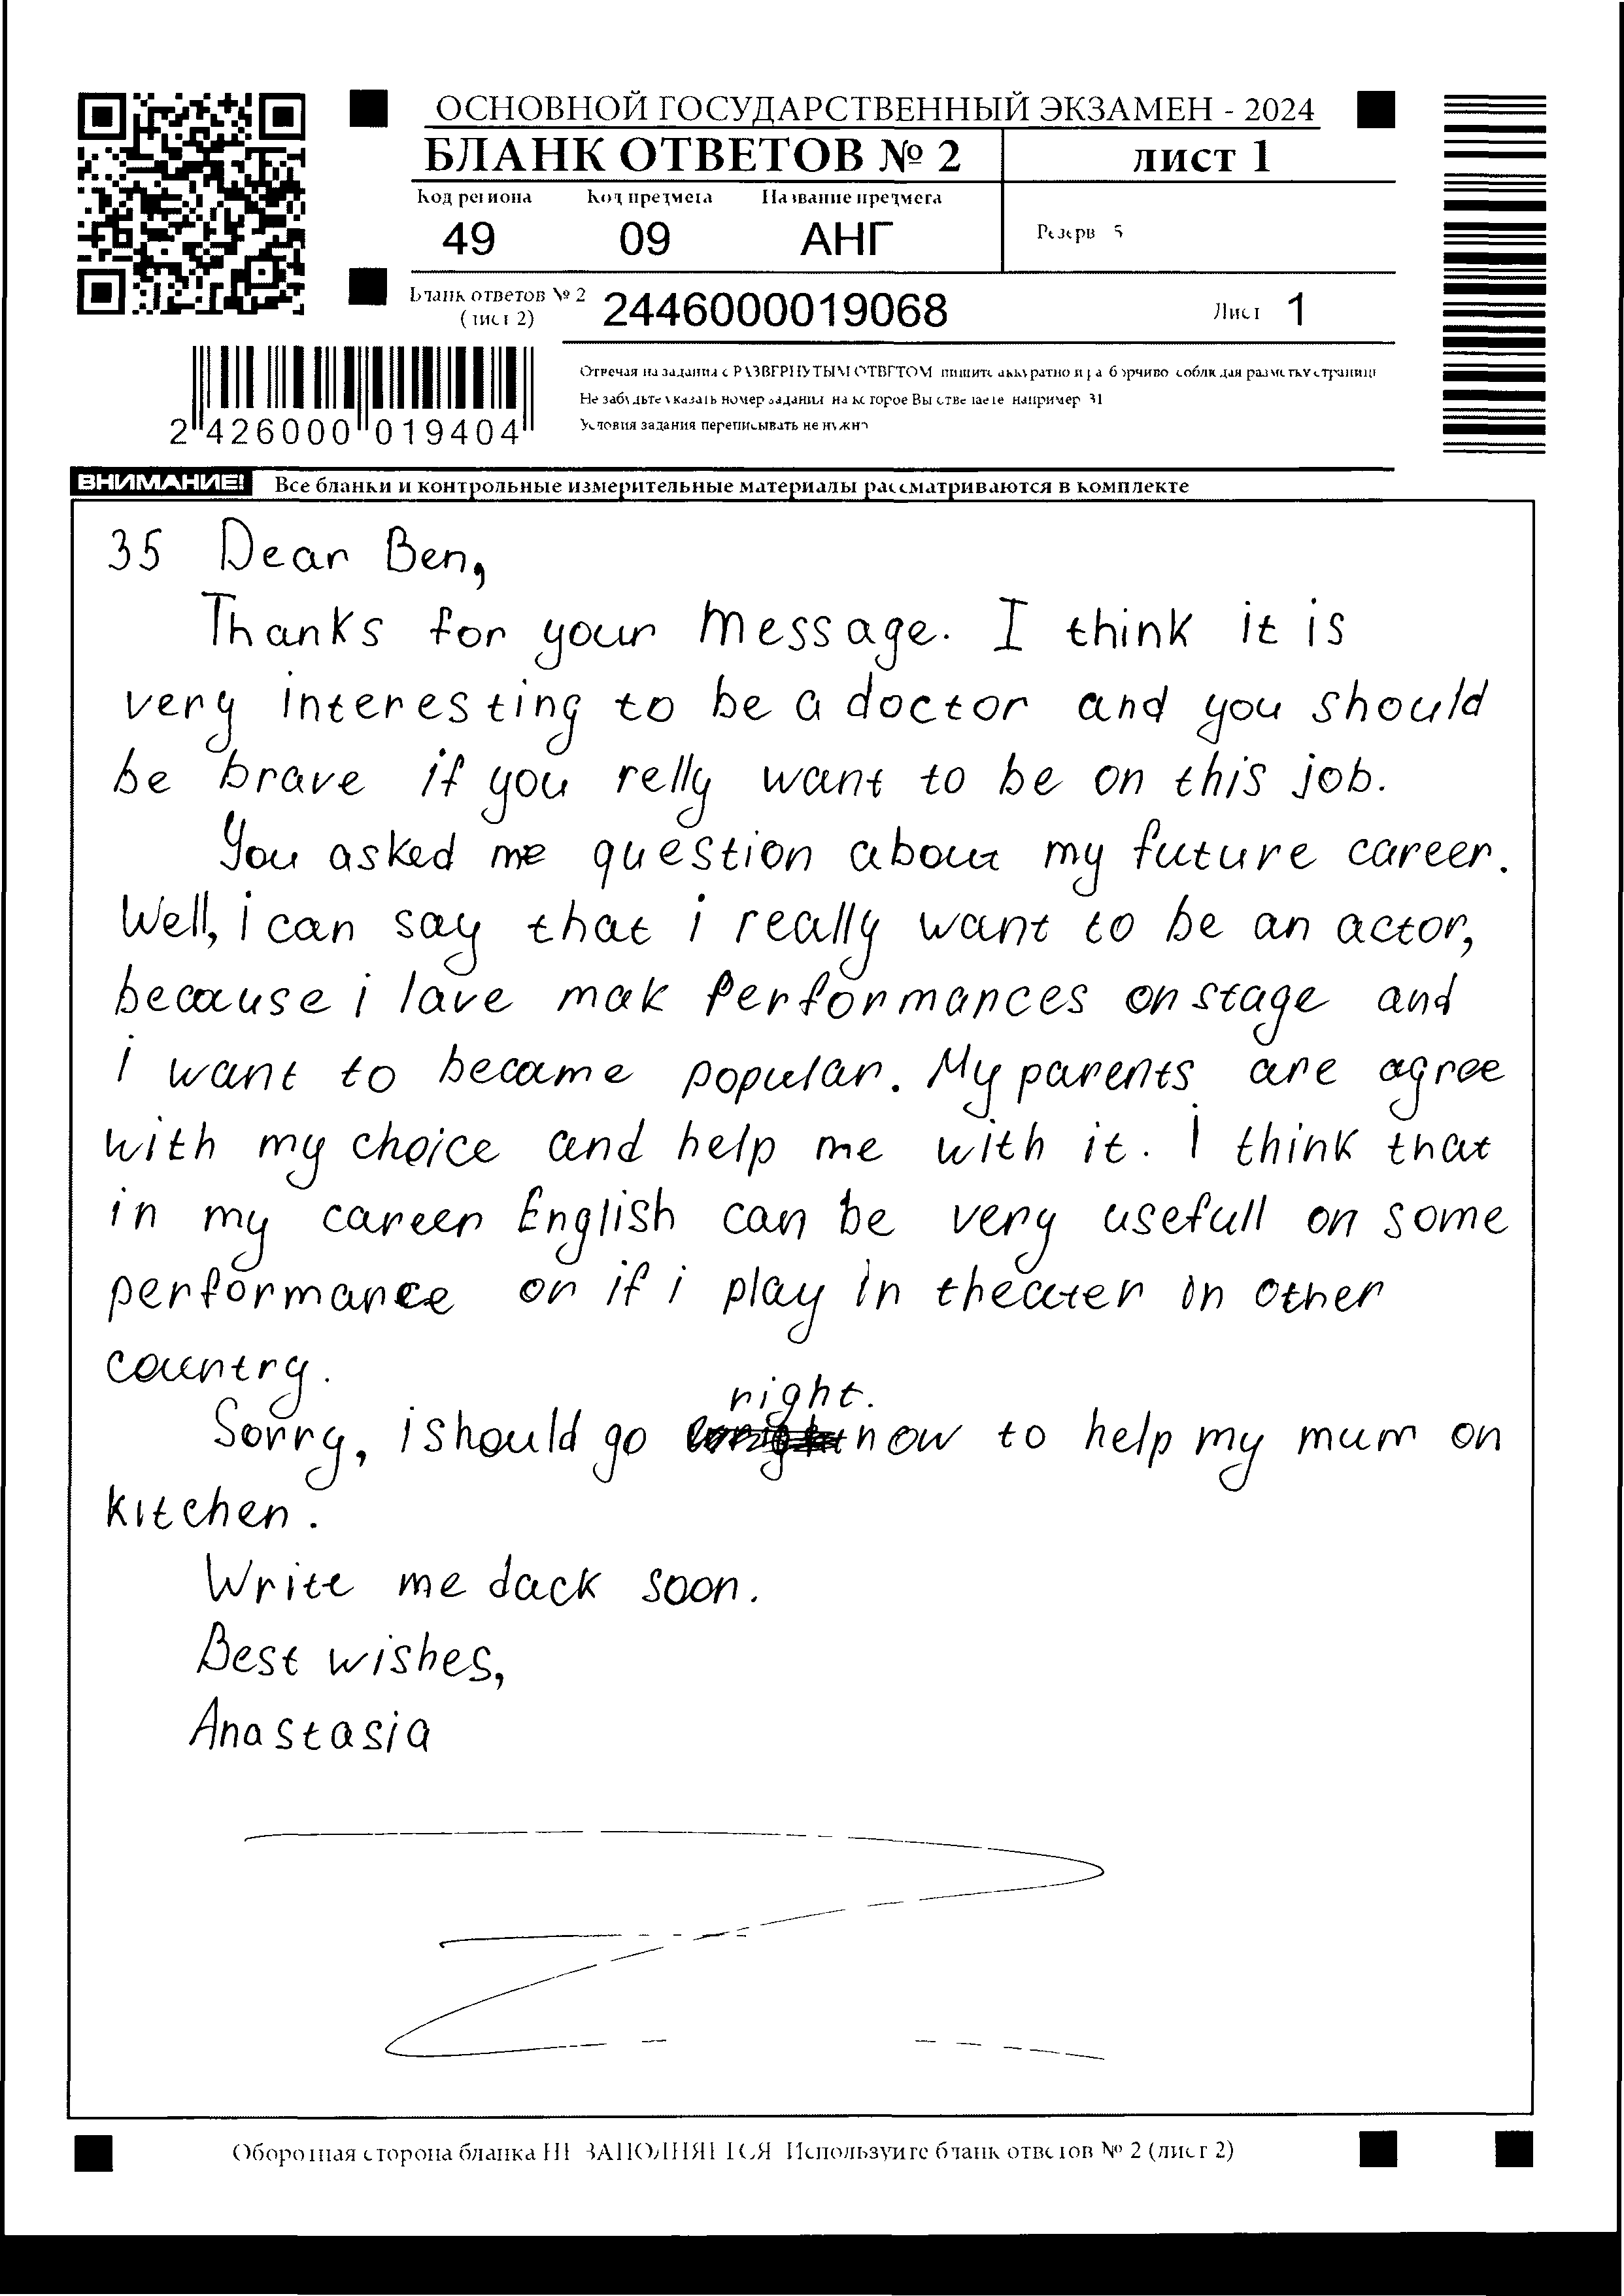 ОСНОВНОЙ ГОСУДАРСТВЕННЫЙ ЭКЗАМЕН - 2024
БЛАНК ОТВЕТОВ № 2
лист 1
Код региона Код предмета Название предмета
49 09 АНГ
Резерв 5
Бланк ответов № 2
(лист 2)
2446000019068
Лист 1
2 426000 019404
Отвечая на задания с РАЗВЕРНУТЫМ ОТВЕТОМ пишите аккуратно и разборчиво соблюдая разметку страницы
Не забудьте указать номер задания на которое Вы отвечаете например 31
Условия задания переписывать не нужно
ВНИМАНИЕ! Все бланки и контрольные измерительные материалы рассматриваются в комплекте
35 Dear Ben,
Thanks for your message. I think it is
very interesting to be a doctor and you should
be brave if you relly want to be on this job.
You asked me question about my future career.
Well, i can say that i really want to be an actor,
because i lave mak performances on stage and
i want to became popular. My parents are agree
with my choice and help me with it. I think that
in my career English can be very usefull on some
performance or if i play in theater in other
country.
right.
Sorry, i should go now to help my mum on
kitchen.
Write me dack soon.
Best wishes,
Anastasia
Оборотная сторона бланка НЕ ЗАПОЛНЯЕТСЯ Используйте бланк ответов № 2 (лист 2)